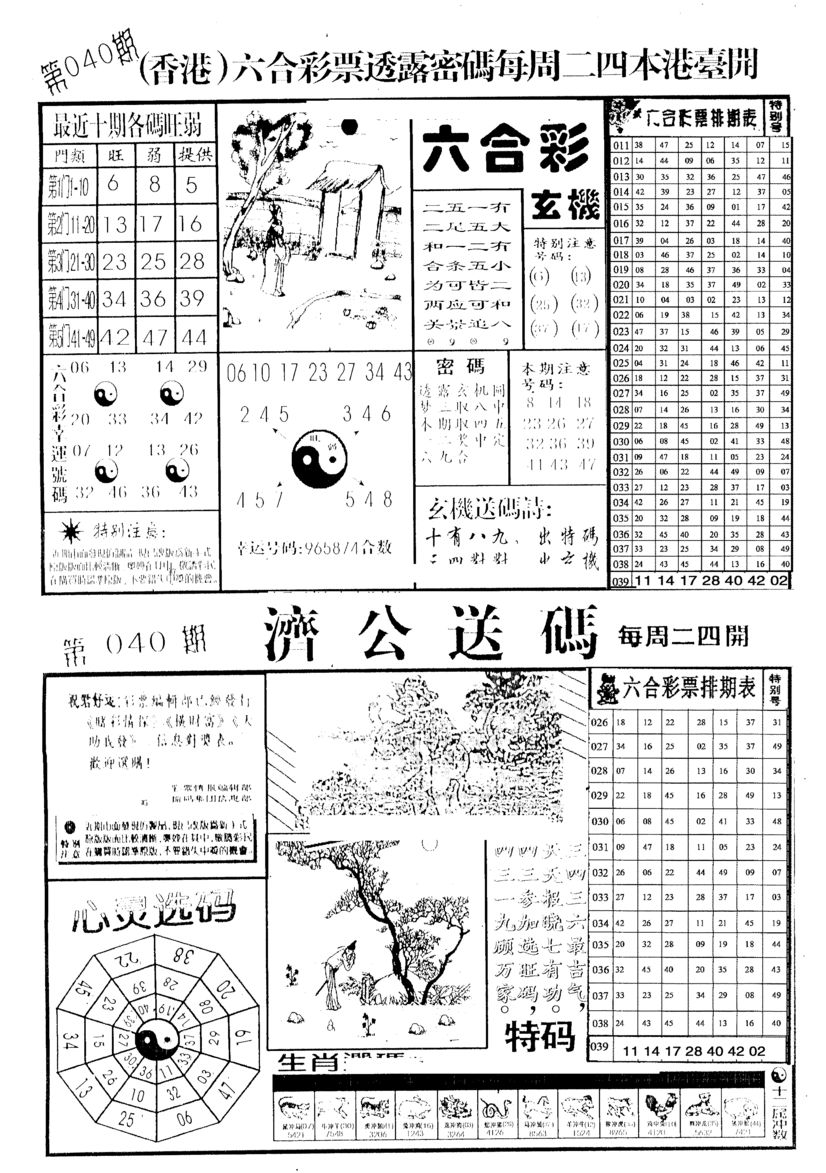 第040期
(香港)六合彩票透露密碼每周二四本港臺開
最近十期各碼旺弱
門類 旺 弱 提供
第1门1-10 6 8 5
第2门11-20 13 17 16
第3门21-30 23 25 28
第4门31-40 34 36 39
第5门41-49 42 47 44
六合彩幸運號碼
06 13 14 29
20 33 34 42
07 12 13 26
32 46 36 43
特别注意:
06 10 17 23 27 34 43
2 4 5 3 4 6
旺 弱
4 5 7 5 4 8
幸运号码:965874合数
六合彩
玄機
二五一有
二尾五大
和一二有
合条五小
为可皆二
两应可和
关景追八
特别注意
号码:
(6) (13)
(25) (32)
(37) (17)
密碼
透露玄机圖
梦二取八中
本期取四五
一二奖中定
六九合
本期注意
号码:
8 14 18
23 26 27
32 36 39
41 43 47
玄機送碼詩:
十有八九、出特碼
三四對對、出玄機
六合彩票排期表 特别号
011 38 47 25 12 14 07 15
012 14 44 09 06 35 12 11
013 30 35 32 36 25 47 46
014 42 39 23 27 12 37 05
015 35 24 36 09 01 17 42
016 32 12 37 22 44 28 20
017 39 04 26 03 18 14 40
018 03 46 37 25 02 14 10
019 08 28 46 37 36 33 04
020 34 18 35 37 49 02 33
021 10 04 03 02 23 13 12
022 06 19 38 15 42 13 34
023 47 37 15 46 39 05 29
024 20 32 31 44 13 06 45
025 04 31 24 18 46 42 11
026 18 12 22 28 15 37 31
027 34 16 25 02 35 37 49
028 07 14 26 13 16 30 34
029 22 18 45 16 28 49 13
030 06 08 45 02 41 33 48
031 09 47 18 11 05 23 24
032 26 06 22 44 49 09 07
033 27 12 23 28 37 17 03
034 42 26 27 11 21 45 19
035 20 32 28 09 19 18 44
036 32 45 40 20 35 28 43
037 33 23 25 34 29 08 49
038 24 43 45 44 13 16 40
039 11 14 17 28 40 42 02
第040期
濟公送碼
每周二四開
祝君好运:彩票編輯部已經發行
《賭彩情探》《橫財富》《大
助民發》 信息對獎表。
歡迎選購!
特别注意
在購買時認準原版,不要錯失中獎的機會。
心灵选码
22 38 20 19 47 06 25 13 34 45
39 28 08 02 03 32 10 26 15 23
四四头三
三三头四
一参报三
九加晓六
顾选七最
万旺有吉
家码功气
。,。,
特码
六合彩票排期表 特别号
026 18 12 22 28 15 37 31
027 34 16 25 02 35 37 49
028 07 14 26 13 16 30 34
029 22 18 45 16 28 49 13
030 06 08 45 02 41 33 48
031 09 47 18 11 05 23 24
032 26 06 22 44 49 09 07
033 27 12 23 28 37 17 03
034 42 26 27 11 21 45 19
035 20 32 28 09 19 18 44
036 32 45 40 20 35 28 43
037 33 23 25 34 29 08 49
038 24 43 45 44 13 16 40
039 11 14 17 28 40 42 02
生肖
5421 7548 3206 1243 3264 4126 8563 1524 8965 4120 5632 7421
十二屆冲数